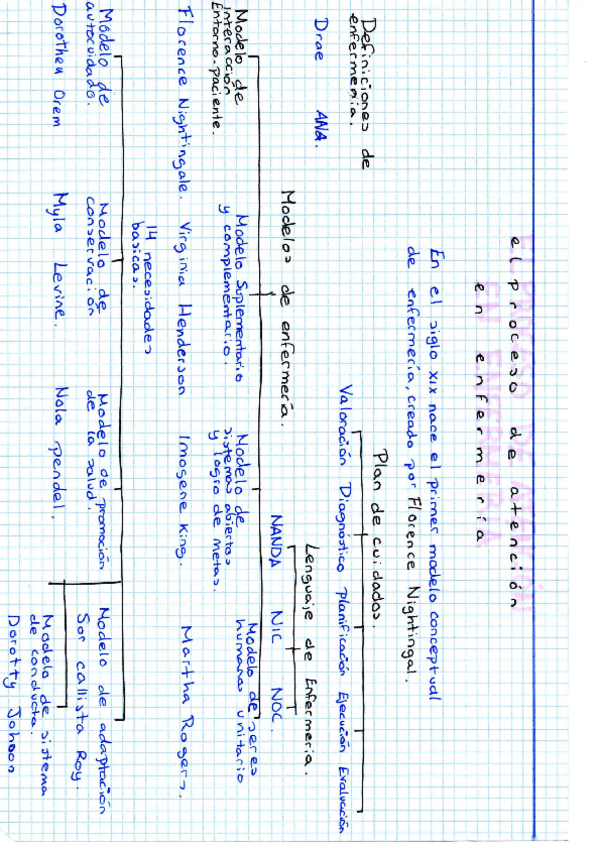 el proceso de atención
en enfermería
En el siglo XIX nace el primer modelo conceptual
de enfermería, creado por Florence Nightingal.
Plan de cuidados.
Valoración Diagnóstico Planificación Ejecución Evaluación
Definiciones de
enfermería.
Drae ANA.
Lenguaje de Enfermería.
NANDA NIC NOC.
Modelos de enfermería.
Modelo de
interacción
Entorno-paciente.
Florence Nightingale.
Modelo Suplementario
y complementario.
Virginia Henderson
14 necesidades
basicas.
Modelo de
sistemas abiertos
y logro de metas.
Imogene King.
Modelo de seres
humanos unitario
Martha Rogers.
Modelo de
autocuidado.
Dorothea Orem
Modelo de
conservación
Myla Levine.
Modelo de promoción
de la salud.
Nola pendel.
Modelo de adaptación
Sor callista Roy.
Modelo de sistema
de conducta.
Dorotty Johson